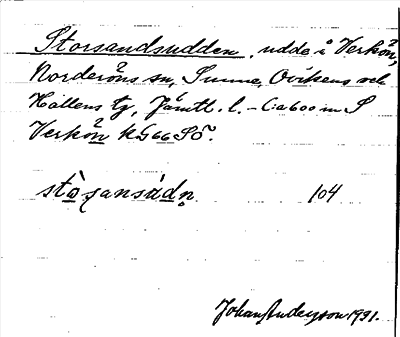 Storsandsudden, udde i Verkön,
Norderöns sn, Sunne, Ovikens och
Hallens tg, Jämtl. l. – C:a 600 m S
Verkön kG66SÖ.
104
Johan Anderson 1931.